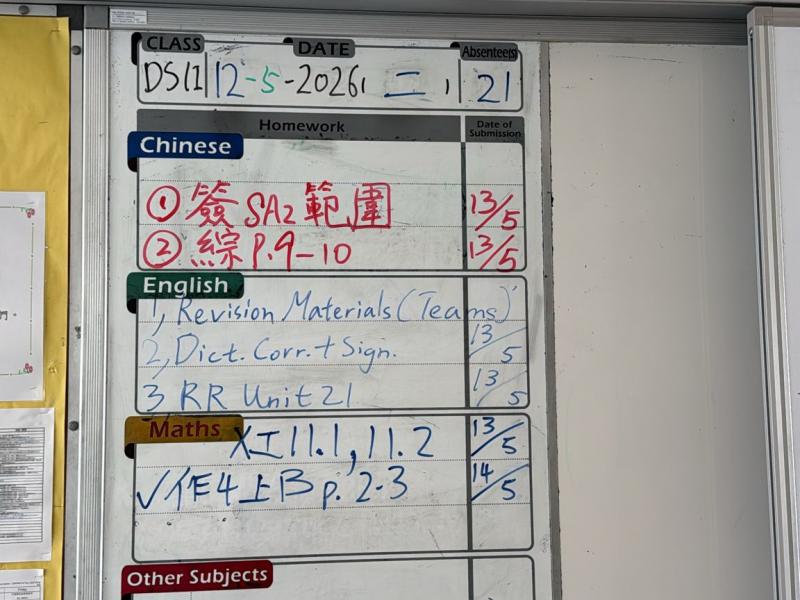 CLASS DATE Absentee(s)
DS(1) 12-5-2026, 二, 21
Homework Date of Submission
Chinese
① 簽 SA2 範圍 13/5
② 綜 P.9-10 13/5
English
1, Revision Materials (Teams)
2, Dict. Corr. + Sign. 13/5
3, RR Unit 21 13/5
Maths
X工11.1, 11.2 13/5
✓作4上B p. 2-3 14/5
Other Subjects